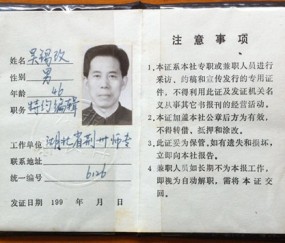 姓名 吴锡改
性别 男
年龄 46
职务 特约编辑
工作单位 湖北省荆州师专
联系地址
统一编号 6126
发证日期 199 年 月 日
注意事项
1.本证系本社专职或兼职人员进行
采访、约稿和宣传发行的专用证
件,不得利用此证及发证机关名
义从事其它书报刊的经营活动。
2.本证加盖本社公章后方为有效,
不得转借、抵押和涂改。
3.此证妥为保管,如有遗失和损坏,
立即向本社报告。
4.兼职人员如长期不为本报工作,
即视为自动解职,需将本证交
回。